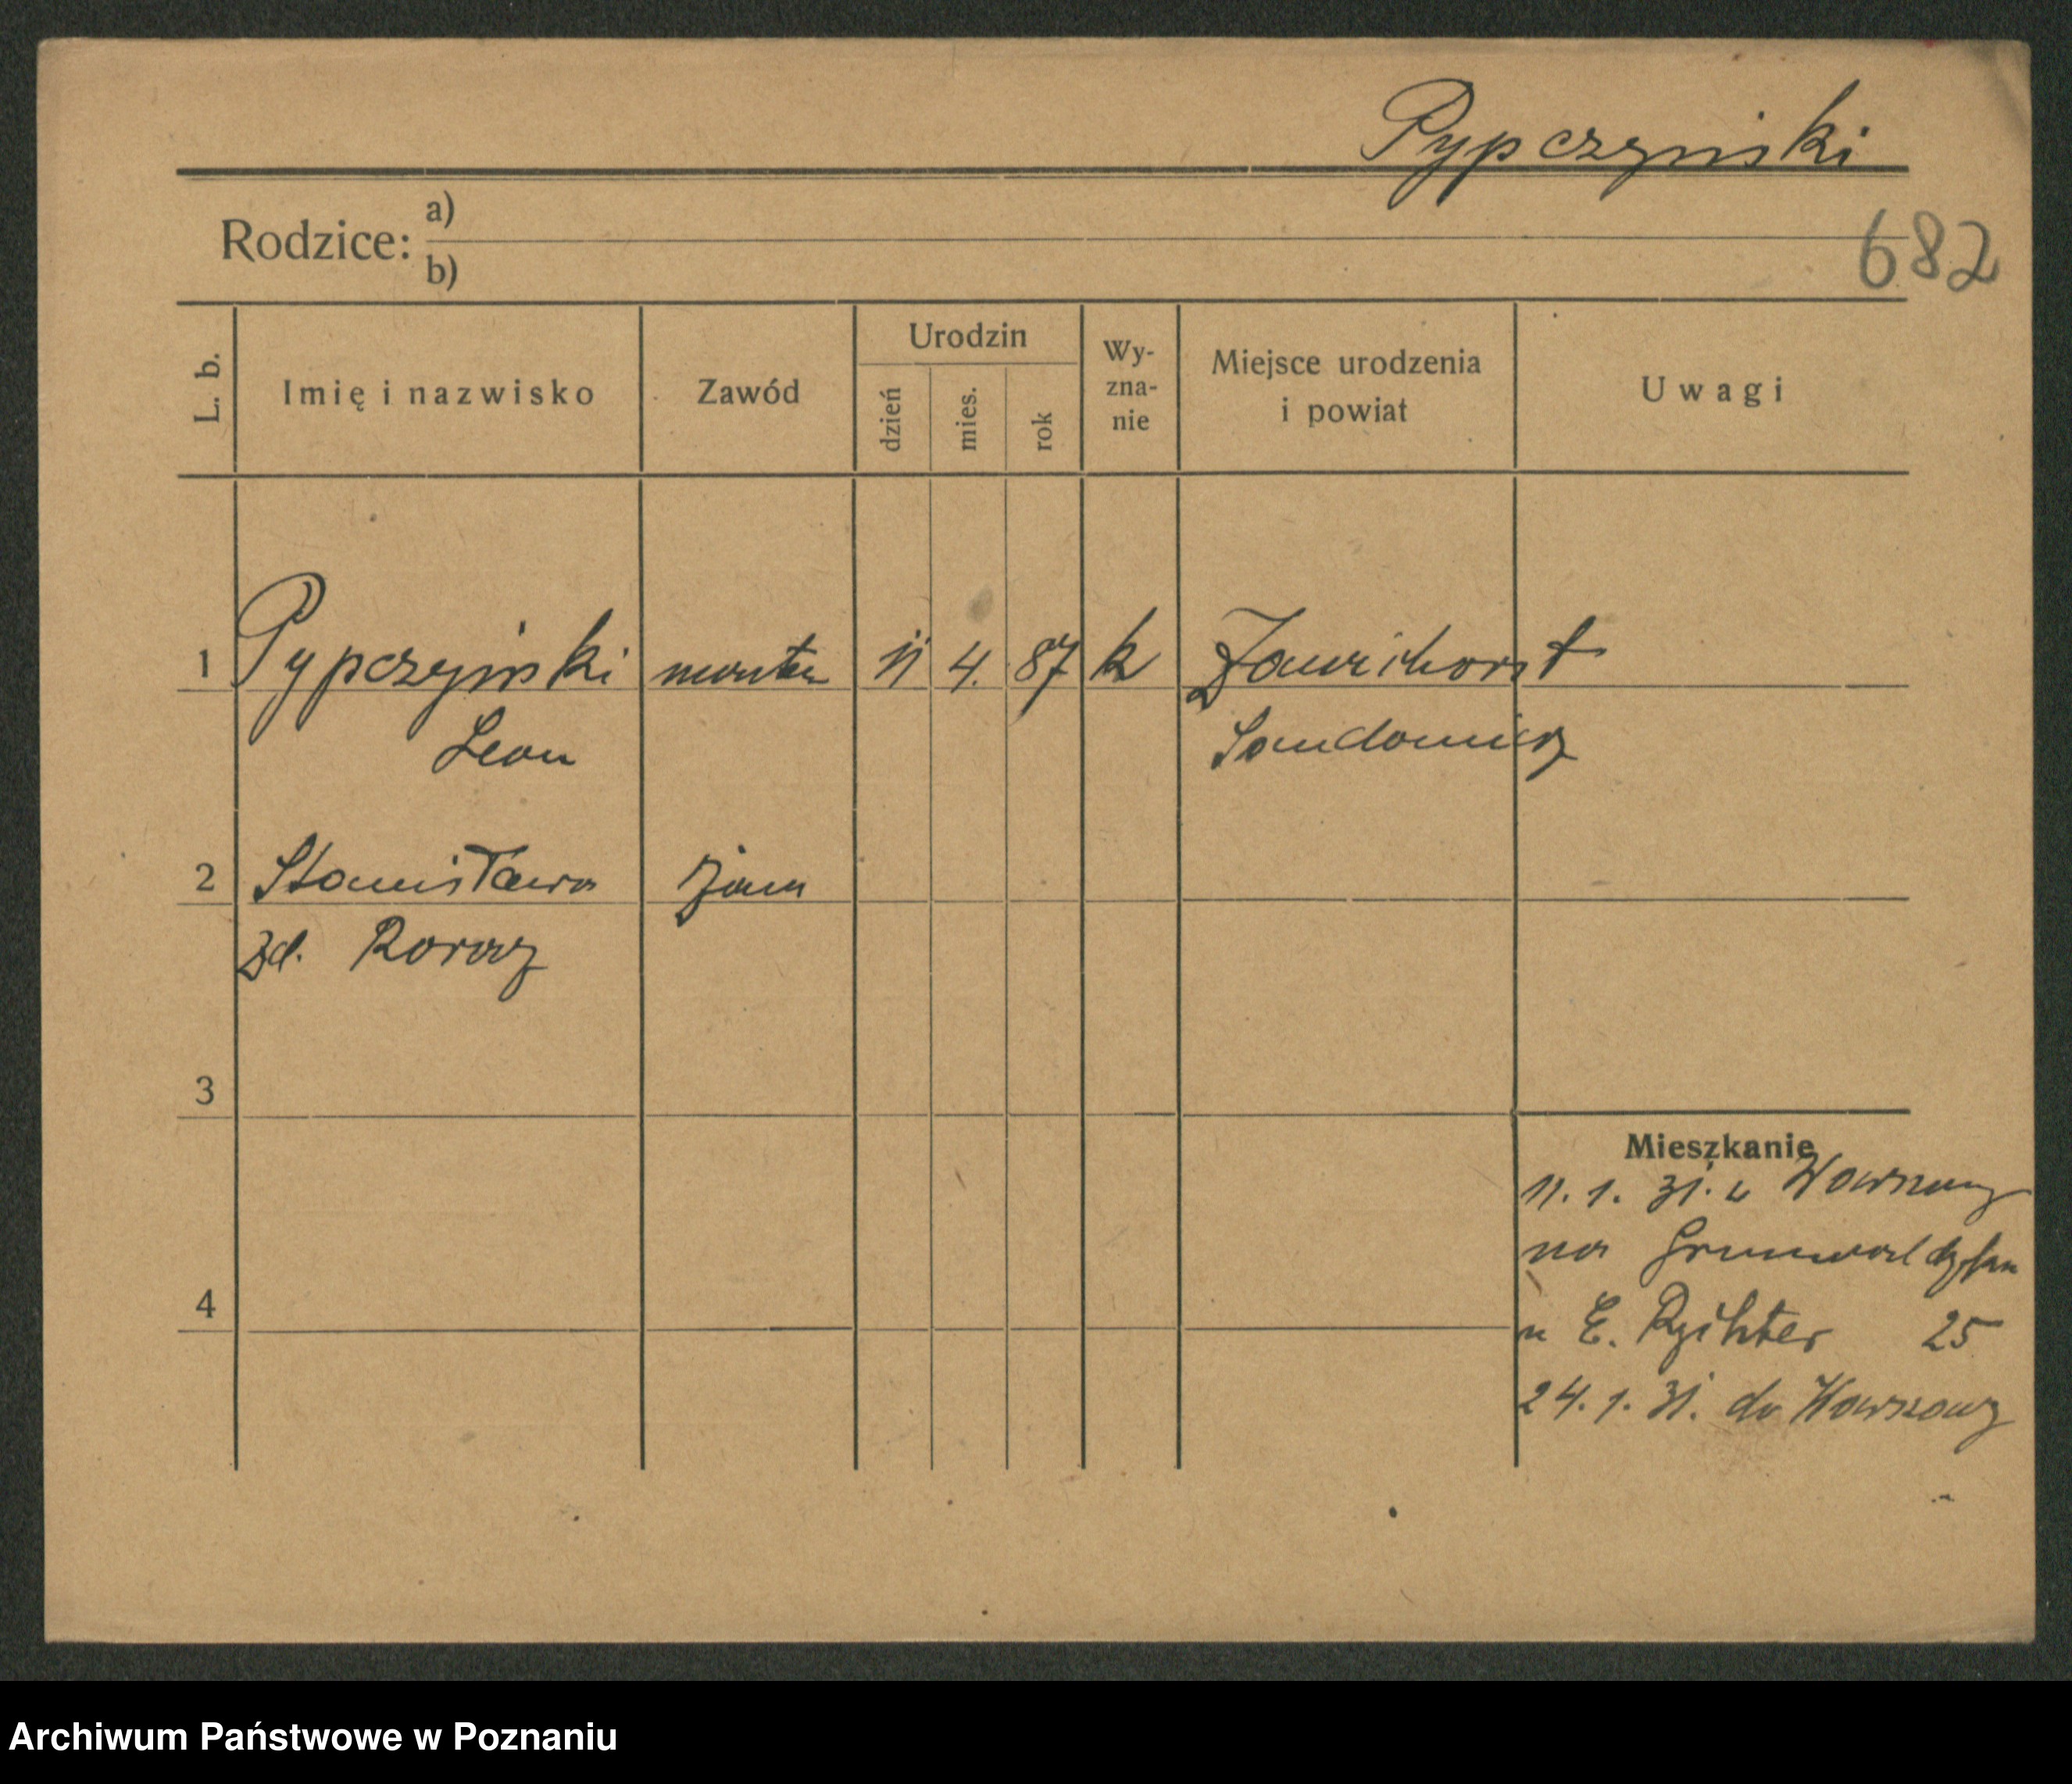 Pypczyński
Rodzice: a)
b)
682
L. b.
Imię i nazwisko
Zawód
Urodzin
dzień
mies.
rok
Wy-
zna-
nie
Miejsce urodzenia
i powiat
Uwagi
1 Pypczyński monter 11 4. 87 k Zawichost
Leon Sandomierz
2 Stanisława żona
zd.
3
4
Mieszkanie
11. 1. 31. z Warszawy
na
u E. Rychter 25
24. 1. 31. do Warszawy
Archiwum Państwowe w Poznaniu